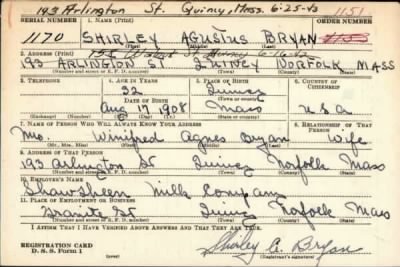 193 Arlington St. Quincy, Mass. 6-25-43 1151
SERIAL NUMBER 1. NAME (Print)
1170 SHIRLEY AGUSTUS BRYAN
(First) (Middle) (Last)
2. ADDRESS (Print)
193 ARLINGTON ST QUINCY NORFOLK MASS
(Number and street or R. F. D. number) (Town) (County) (State)
3. TELEPHONE 4. AGE IN YEARS 5. PLACE OF BIRTH 6. COUNTRY OF CITIZENSHIP
32 Quincy
DATE OF BIRTH (Town or county)
Aug 1908 Mass U.S.A
(Exchange) (Number) (Mo.) (Day) (Yr.) (State or country)
7. NAME OF PERSON WHO WILL ALWAYS KNOW YOUR ADDRESS 8. RELATIONSHIP OF THAT PERSON
Mrs. Winifred Agnes Bryan Wife
(Mr., Mrs., Miss) (First) (Middle) (Last)
9. ADDRESS OF THAT PERSON
193 Arlington St Quincy Norfolk Mass
(Number and street or R. F. D. number) (Town) (County) (State)
10. EMPLOYER'S NAME
Shawsheen Milk Company
11. PLACE OF EMPLOYMENT OR BUSINESS
Granite St Quincy Norfolk Mass
(Number and street or R. F. D. number) (Town) (County) (State)
I AFFIRM THAT I HAVE VERIFIED ABOVE ANSWERS AND THAT THEY ARE TRUE.
REGISTRATION CARD
D. S. S. Form 1
Shirley A. Bryan
(Registrant's signature)